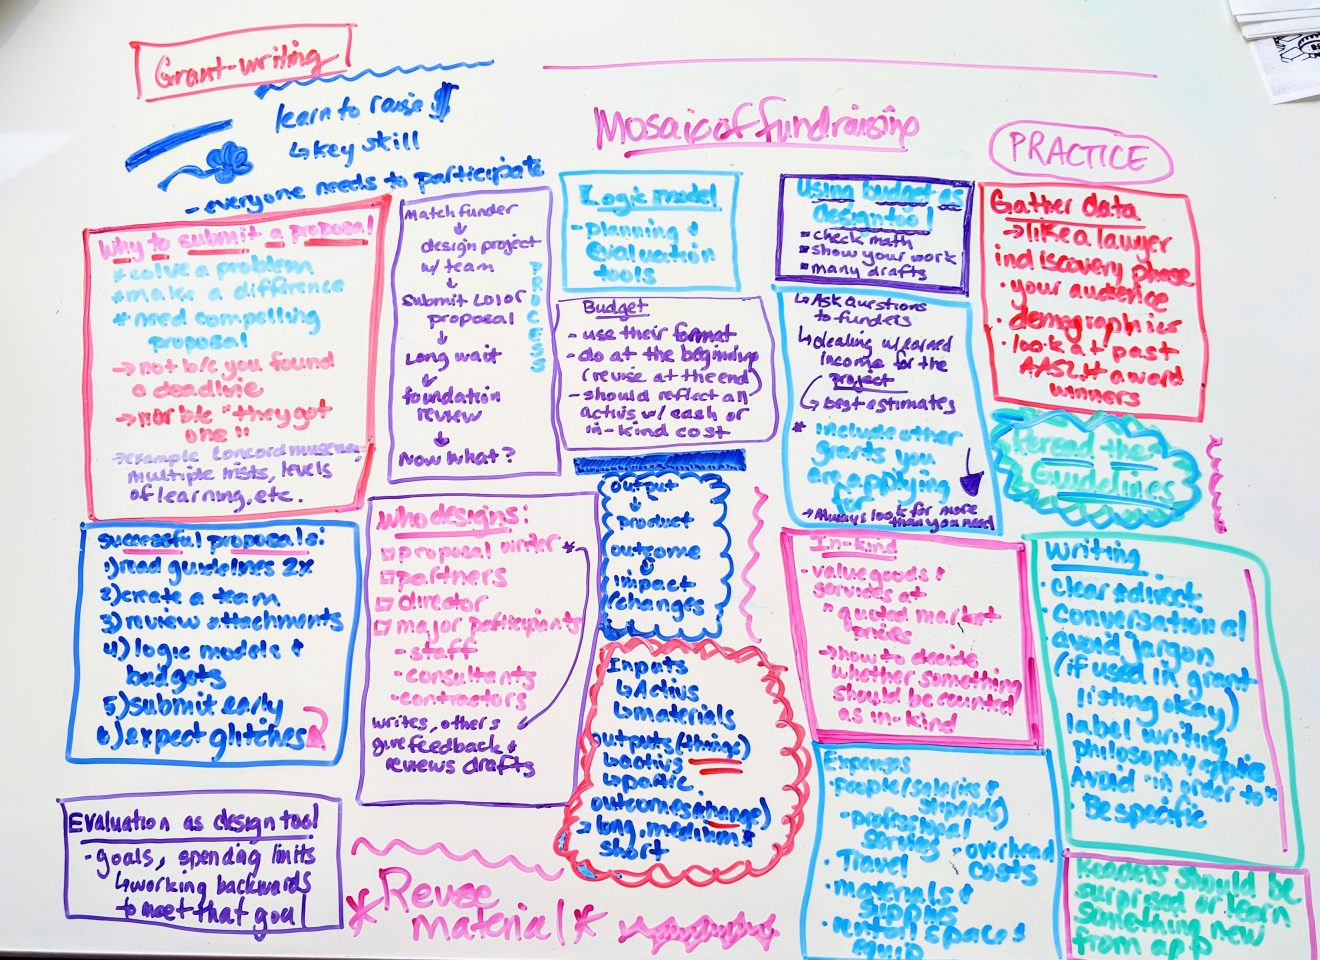 Grant-writing
learn to raise $
↳ key skill
- everyone needs to participate
Mosaic of fundraising
PRACTICE
Why to submit a proposal
* solve a problem
* make a difference
* need compelling
proposal
→ not b/c you found
a deadline
→ nor b/c "they got
one"
→ example Concord museum,
multiple lists, levels
of learning, etc.
Match funder
↓
design project
w/ team
↓
submit LOI or
proposal
↓
Long wait
↓
foundation
review
↓
Now what?
PROCESS
Logic model
- planning +
evaluation
tools
Budget
- use their format
- do at the beginning
(revise at the end)
- should reflect all
activs w/ cash or
in-kind cost
Using budget as
design tool
▪ check math
▪ show your work
▪ many drafts
↳ Ask questions
to funders
↳ dealing w/ earned
income for the
project
↳ best estimates
* include other
grants you
are applying
for
→ Always look for more
than you need
Gather data
→ like a lawyer
in discovery phase
· your audience
· demographics
· look at past
AASLH award
winners
Reread the
Guidelines
Successful proposals:
1) read guidelines 2x
2) create a team
3) review attachments
4) logic models +
budgets
5) submit early
6) expect glitches
Who designs:
proposal writer *
partners
director
major participants
- staff
- consultants
- contractors
writes, others
give feedback +
reviews drafts
output
↓
product
outcome
↓
impact
(changes
Inputs
↳ Activs
↳ materials
outputs (things)
↳ activs
↳ partic.
outcomes (change)
→ long, medium &
short
In-kind
- value goods +
services at
"quoted market
prices
→ how to decide
whether something
should be counted
as in-kind
Writing
· clear + direct
· conversational
avoid jargon
(if used in grant
listing okay)
label writing
philosophy applies
Avoid "in order to"
· Be specific
Evaluation as design tool
- goals, spending limits
↳ working backwards
to meet that goal
* Reuse
material *
Expenses
· people (salaries +
stipends)
- professional
servics - overhead
costs
· Travel
· materials +
supplies
· rental spaces
equip
Readers should be
surprised or learn
something new
from app